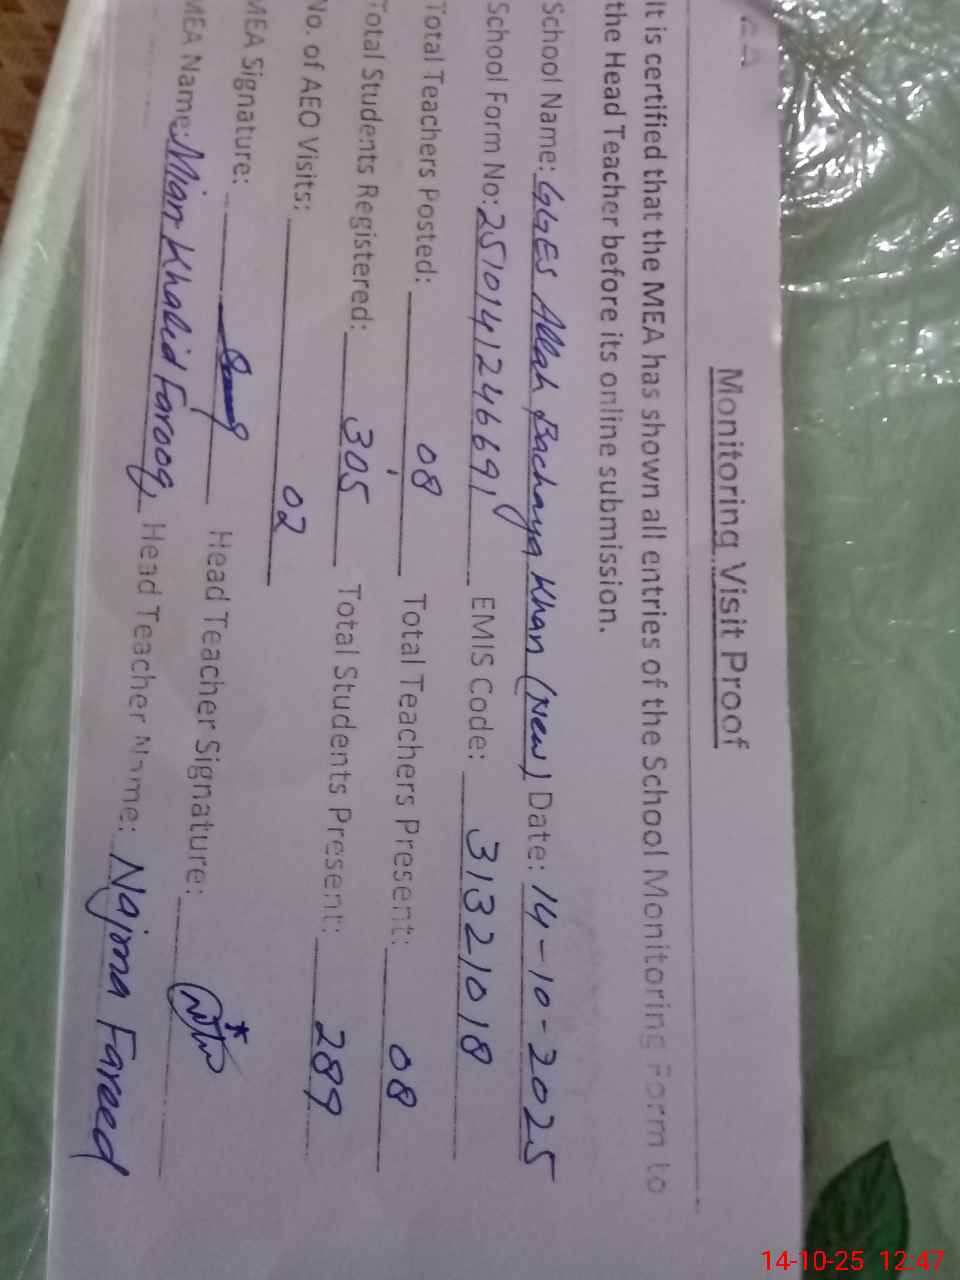 Monitoring Visit Proof
It is certified that the MEA has shown all entries of the School Monitoring Form to
the Head Teacher before its online submission.
School Name: GGES Allah Bachaya Khan (New) Date: 14-10-2025
School Form No: 2510141246691 EMIS Code: 31321018
Total Teachers Posted: 08 Total Teachers Present: 08
Total Students Registered: 305 Total Students Present: 289
No. of AEO Visits: 02
MEA Signature: Head Teacher Signature:
MEA Name: Mian Khalid Farooq Head Teacher Name: Najma Fareed
14-10-25 12:47